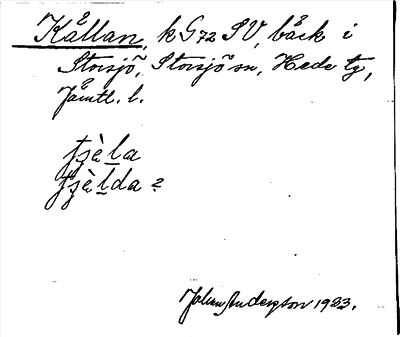 Kållan, k G72 SV, bäck i
Storsjö, Storsjö sn, Hede tg,
Jämtl. l.
fjè̀la
fjèlda ?
Johan Anderzson 1923.